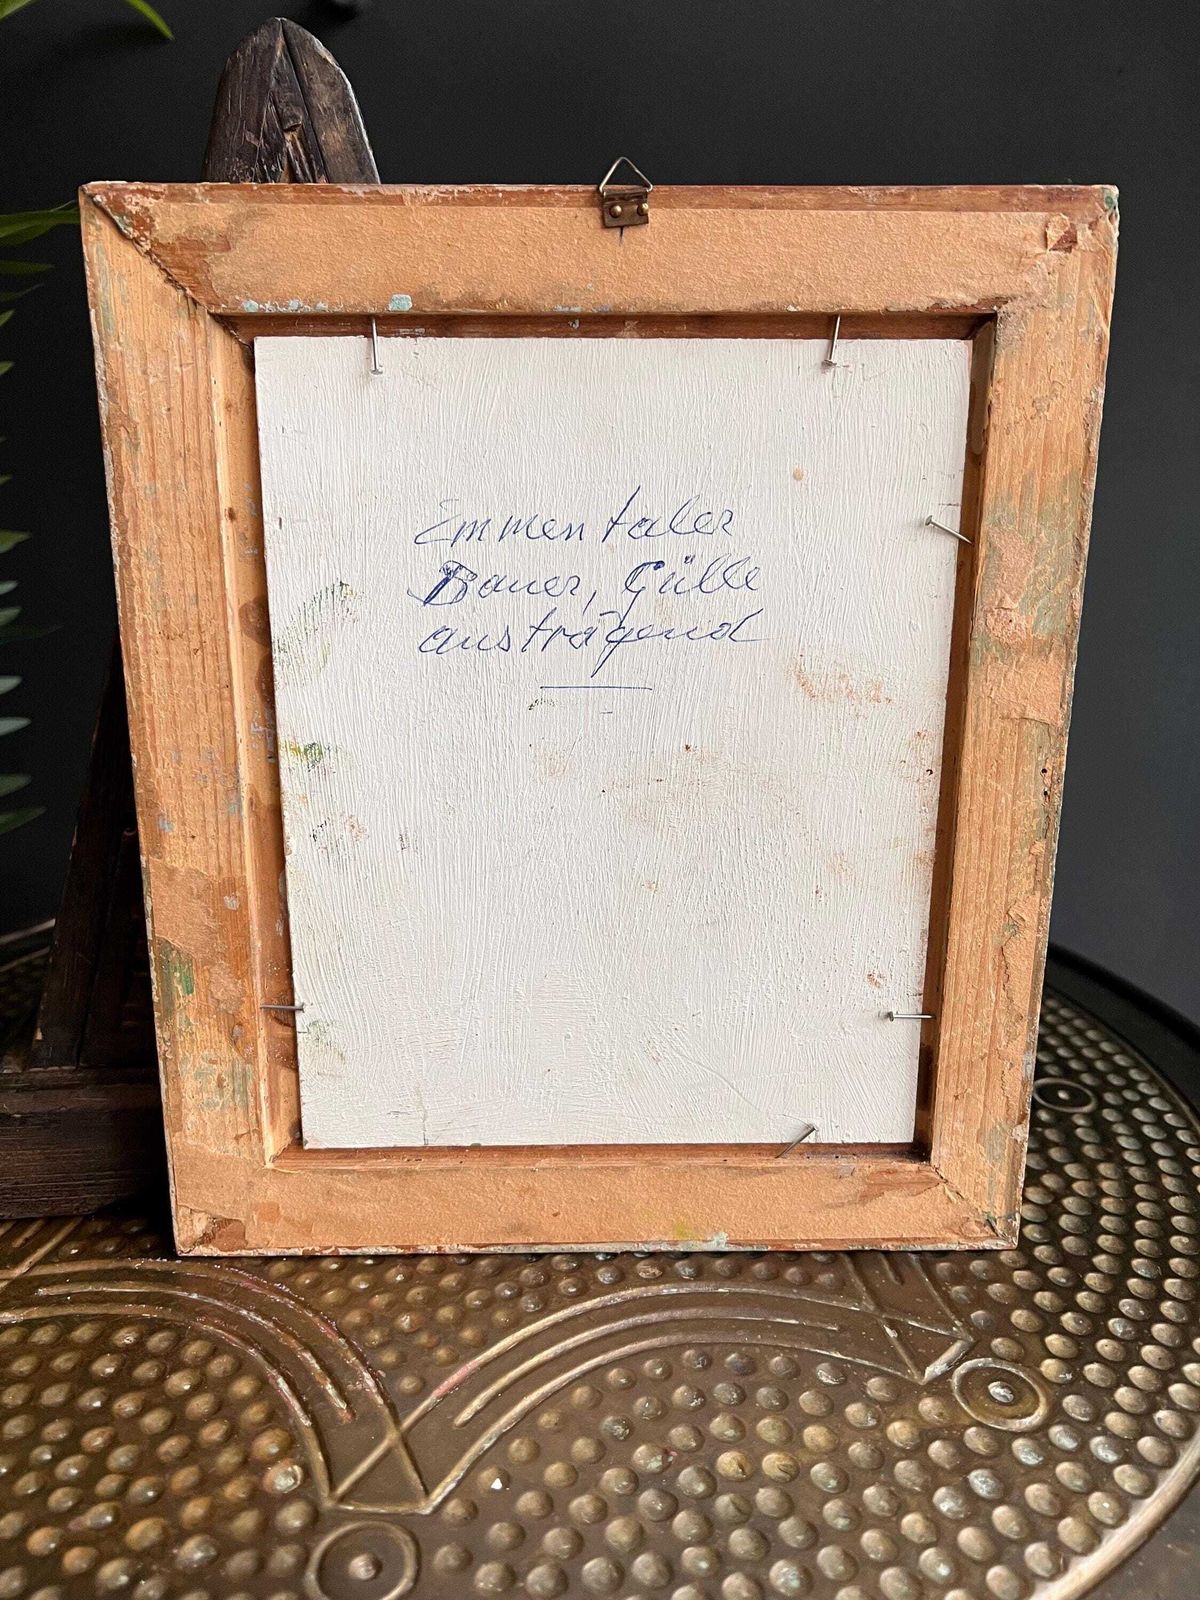 Emmentaler
Bauer, Gülle
austragend